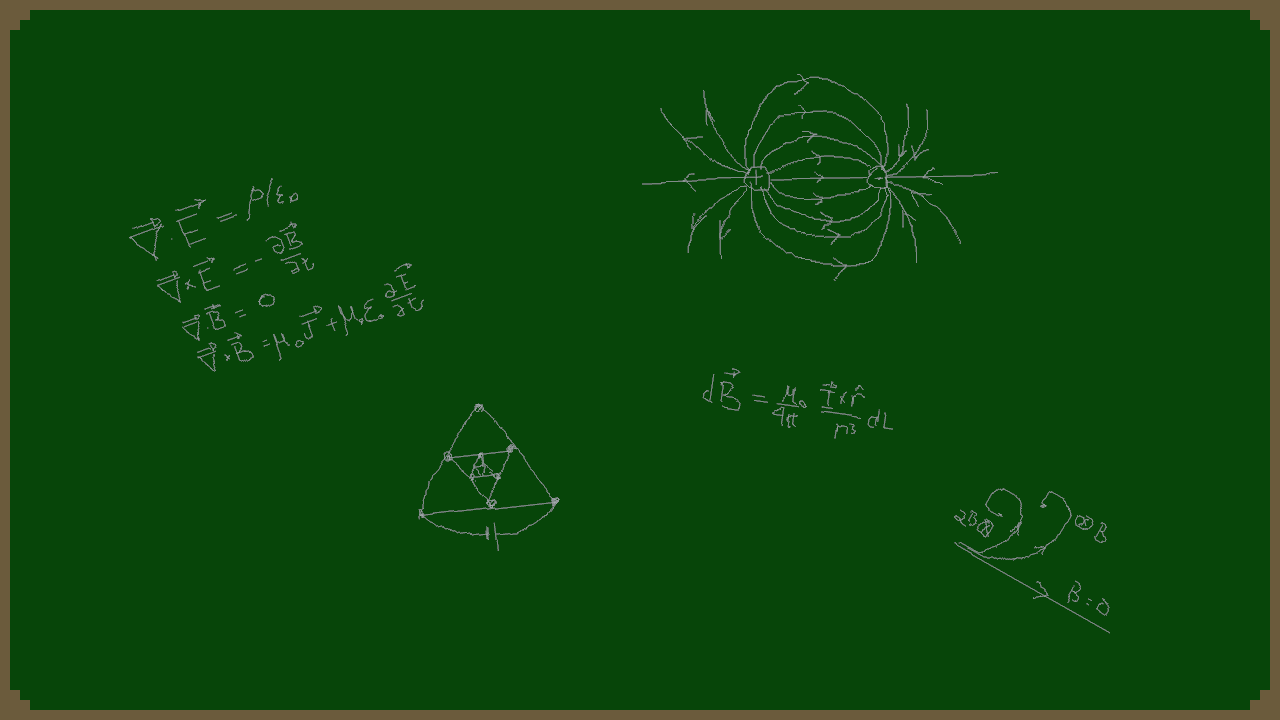 ∇⃗·E⃗ = ρ/ε₀
∇⃗×E⃗ = -∂B⃗/∂t
∇⃗·B⃗ = 0
∇⃗×B⃗ = μ₀J⃗ + μ₀ε₀ ∂E⃗/∂t
+ -
dB⃗ = μ₀/4π I⃗×r̂/r³ dL
2B⊗
⊗B
B=0